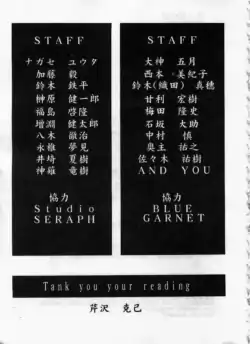 STAFF
ナガセ ユウタ
加藤 毅
鈴木 鉄平
榊原 健一郎
福島 啓隆
増淵 健太郎
八木 誠治
永椎 夢見
井埼 夏樹
神羅 竜樹
協力
Studio
SERAPH
STAFF
大神 五月
西本 美紀子
鈴木(織田) 真穂
甘利 宏樹
梅田 隆史
石坂 大助
中村 慎
奥主 祐之
佐々木 祐樹
AND YOU
協力
BLUE
GARNET
Tank you your reading
芹沢 克己